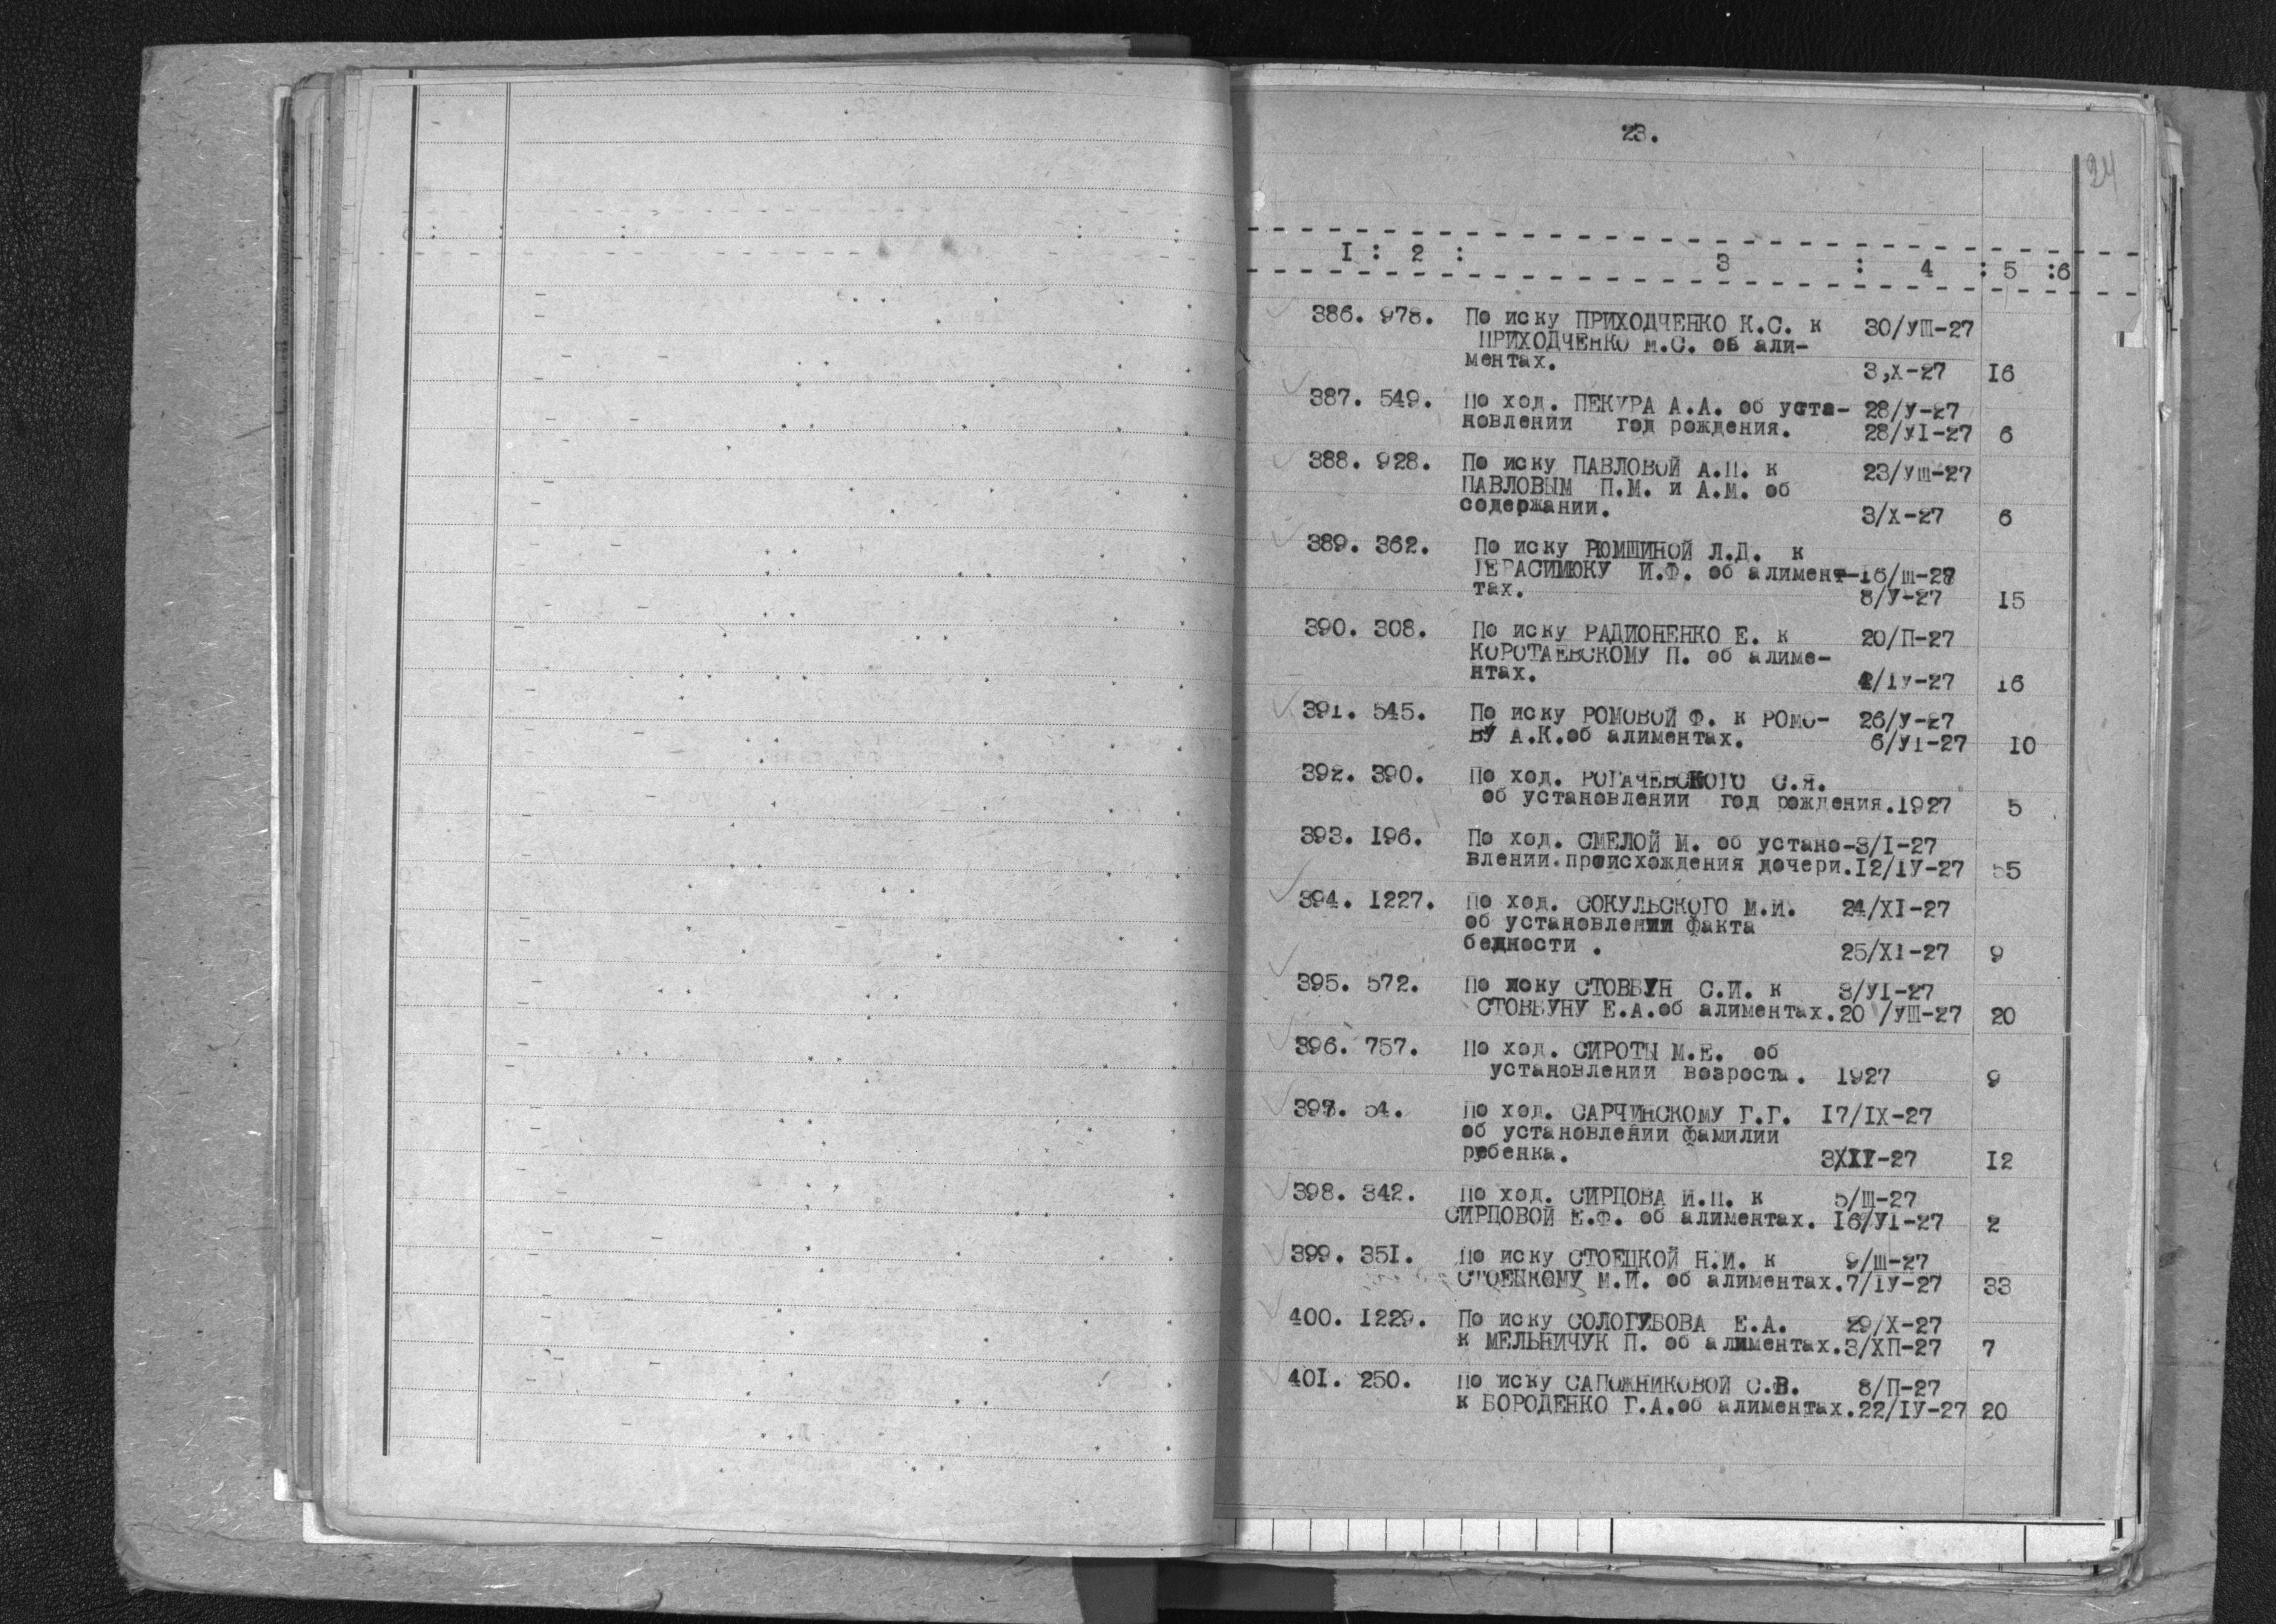 23.
24
I : 2 : 3 : 4 : 5 :6
386. 978. По иску ПРИХОДЧЕНКО К.С. к 30/УШ-27
ПРИХОДЧЕНКО М.С. об али-
ментах. 3,X-27 I6
387. 549. По ход. ПЕКУРА А.А. об уста- 28/У-27
новлении год рождения. 28/УI-27 6
388. 928. По иску ПАВЛОВОЙ А.П. к 23/УШ-27
ПАВЛОВЫМ П.М. и А.М. об
содержании. 3/X-27 6
389. 362. По иску РЮМШИНОЙ Л.Д. к
ГЕРАСИМЮКУ И.Ф. об алимент-I6/Ш-27
тах. 8/У-27 I5
390. 308. По иску РАДИОНЕНКО Е. к 20/П-27
КОРОТАЕВСКОМУ П. об алиме-
нтах. 4/IУ-27 I6
391. 545. По иску РОМОВОЙ Ф. к РОМО- 26/У-27
ВУ А.К.об алиментах. 6/УI-27 I0
392. 390. По ход. РОГАЧЕВСКОГО С.Я.
об установлении год рождения.I927 5
393. I96. По ход. СМЕЛОЙ М. об устано-3/I-27
влении.происхождения дочери.I2/IУ-27 55
394. I227. По ход. СОКУЛЬСКОГО М.И. 24/XI-27
об установлении факта
бедности . 25/XI-27 9
395. 572. По иску СТОВБУН С.И. к 3/УI-27
СТОВБУНУ Е.А.об алиментах.20 /УШ-27 20
396. 757. По ход. СИРОТЫ М.Е. об
установлении возроста. I927 9
397. 54. По ход. САРЧИНСКОМУ Г.Г. I7/IX-27
об установлении фамилии
ребенка. 3/XI-27 I2
398. 342. По ход. СИРЦОВА И.П. к 5/Ш-27
СИРЦОВОЙ Е.Ф. об алиментах. I6/УI-27 2
399. 35I. По иску СТОЕЦКОЙ Н.И. к 9/Ш-27
СТОЕЦКОМУ М.И. об алиментах.7/IУ-27 33
400. I229. По иску СОЛОГУБОВА Е.А. 29/X-27
к МЕЛЬНИЧУК П. об алиментах.3/XП-27 7
401. 250. По иску САПОЖНИКОВОЙ С.В. 8/П-27
к БОРОДЕНКО Г.А.об алиментах.22/IУ-27 20